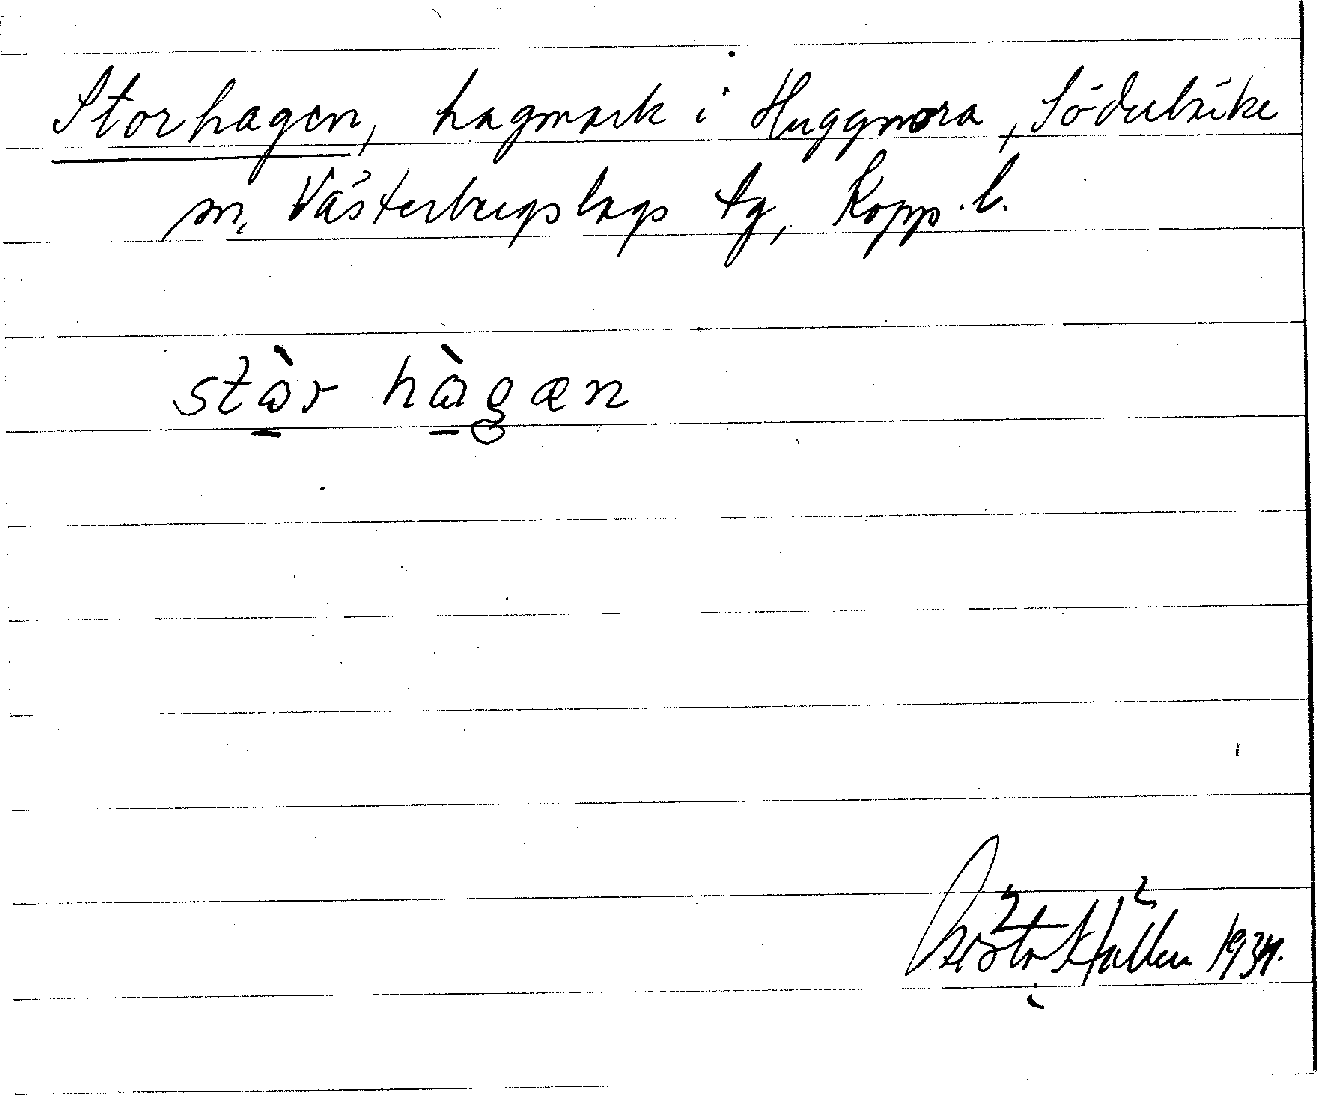 Storhagen, hagmark i Huggnora, Söderbärke
sn, Västerbergslags tg, Kopp. l.
stὼr hὼgæn
Gösta 1934.